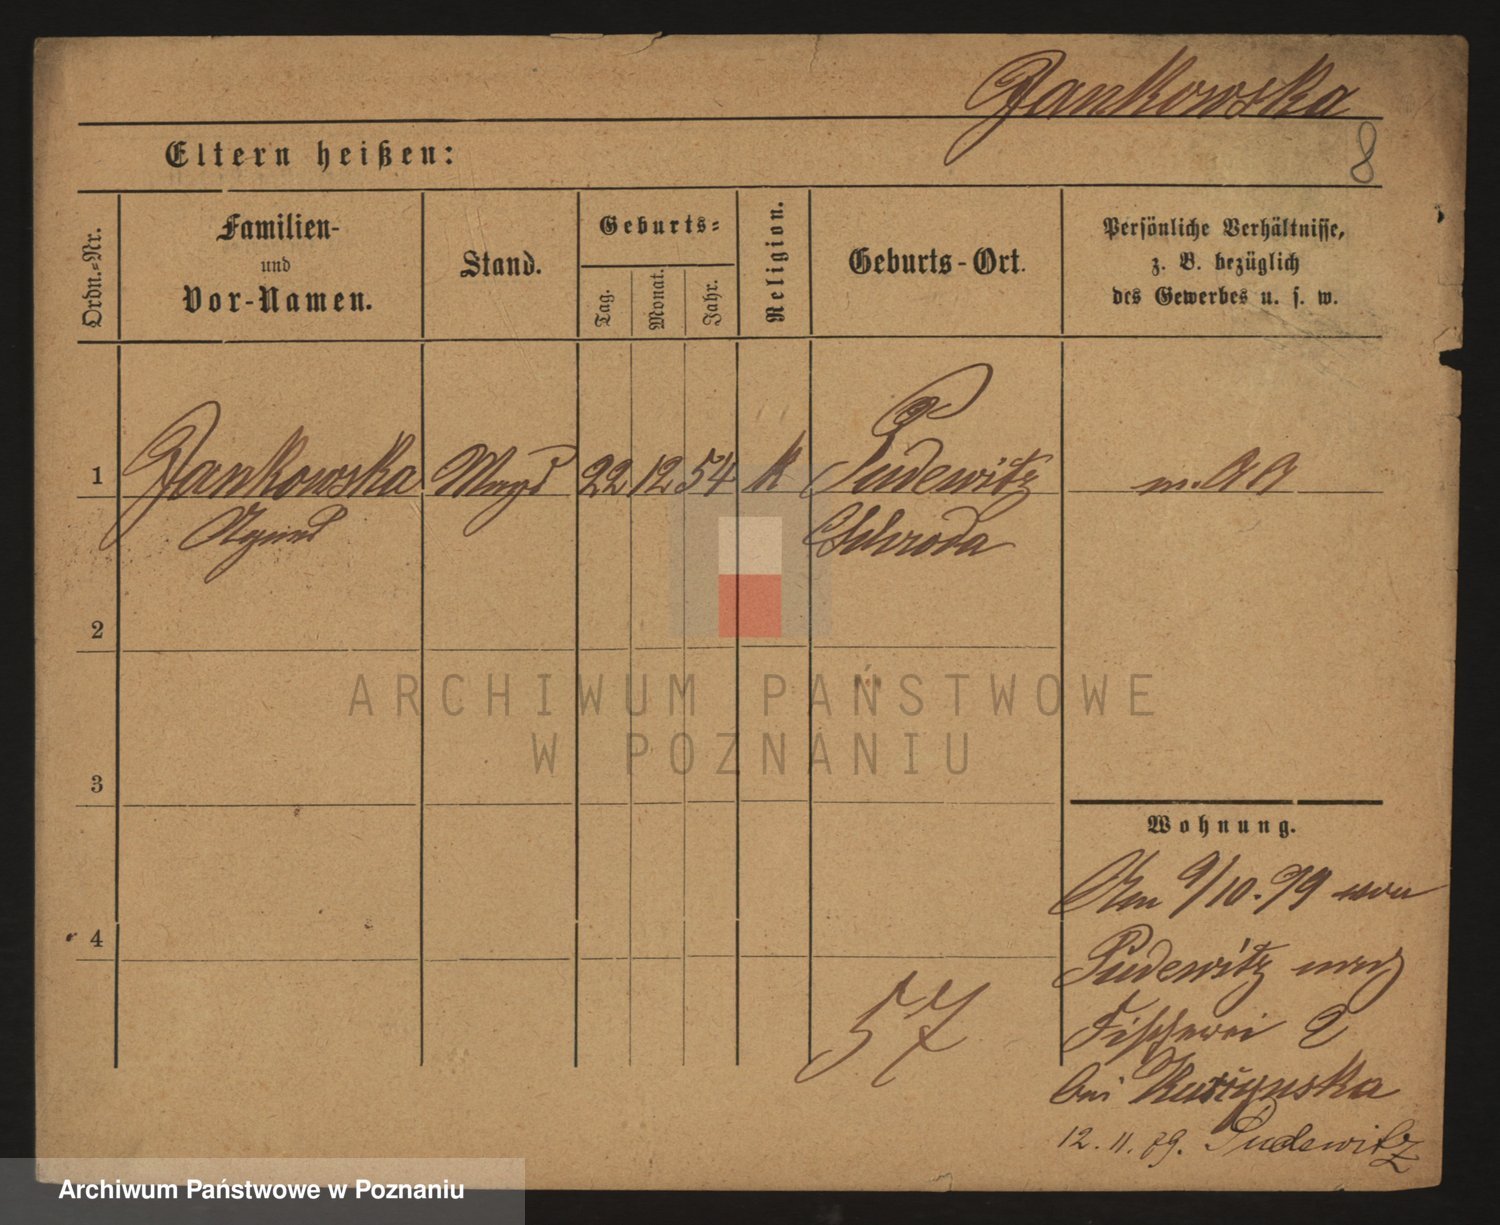 Jankowska
8
Eltern heißen:
Ordn.-Nr.
Familien-
und
Vor-Namen.
Stand.
Geburts-
Tag.
Monat.
Jahr.
Religion.
Geburts-Ort.
Persönliche Verhältnisse,
z. B. bezüglich
des Gewerbes u. s. w.
1 Jankowska Magd 22 12 54 k Pudewitz
Schroda
2
3
4
ARCHIWUM PAŃSTWOWE
W POZNANIU
Wohnung.
Am 9/10. 79 von
Pudewitz nach
Fischerei 2
bei
12. 11. 79. Pudewitz
57
Archiwum Państwowe w Poznaniu